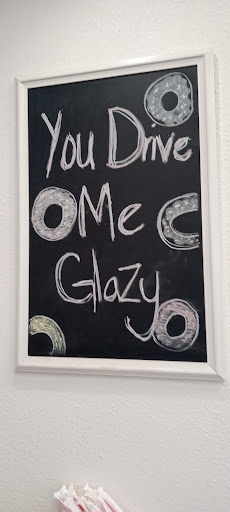 You Drive
Me
Glazy